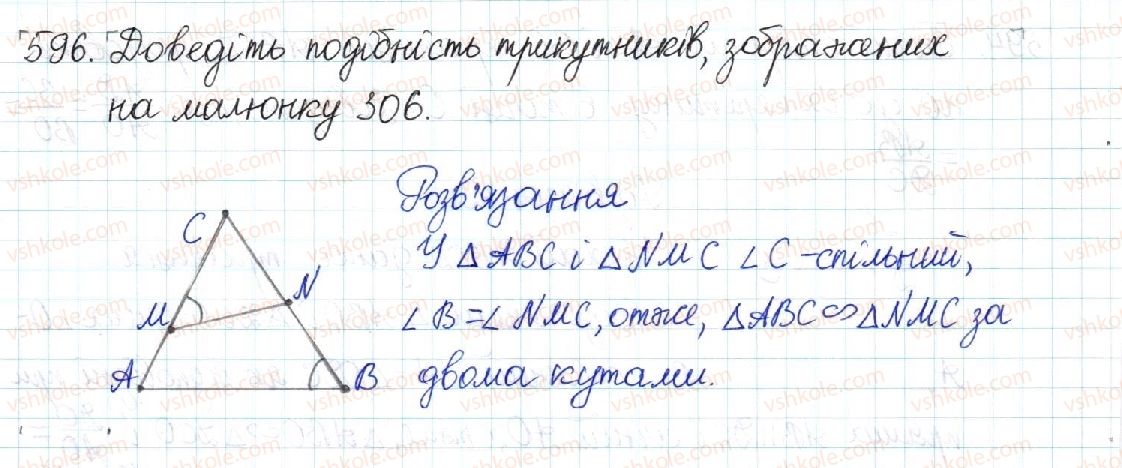 596. Доведіть подібність трикутників, зображених
на малюнку 306.
Розв'язання
У △ABC і △NMC ∠C - спільний,
∠B = ∠NMC, отже, △ABC ∽ △NMC за
двома кутами.
C
N
M
A
B
vshkole.com